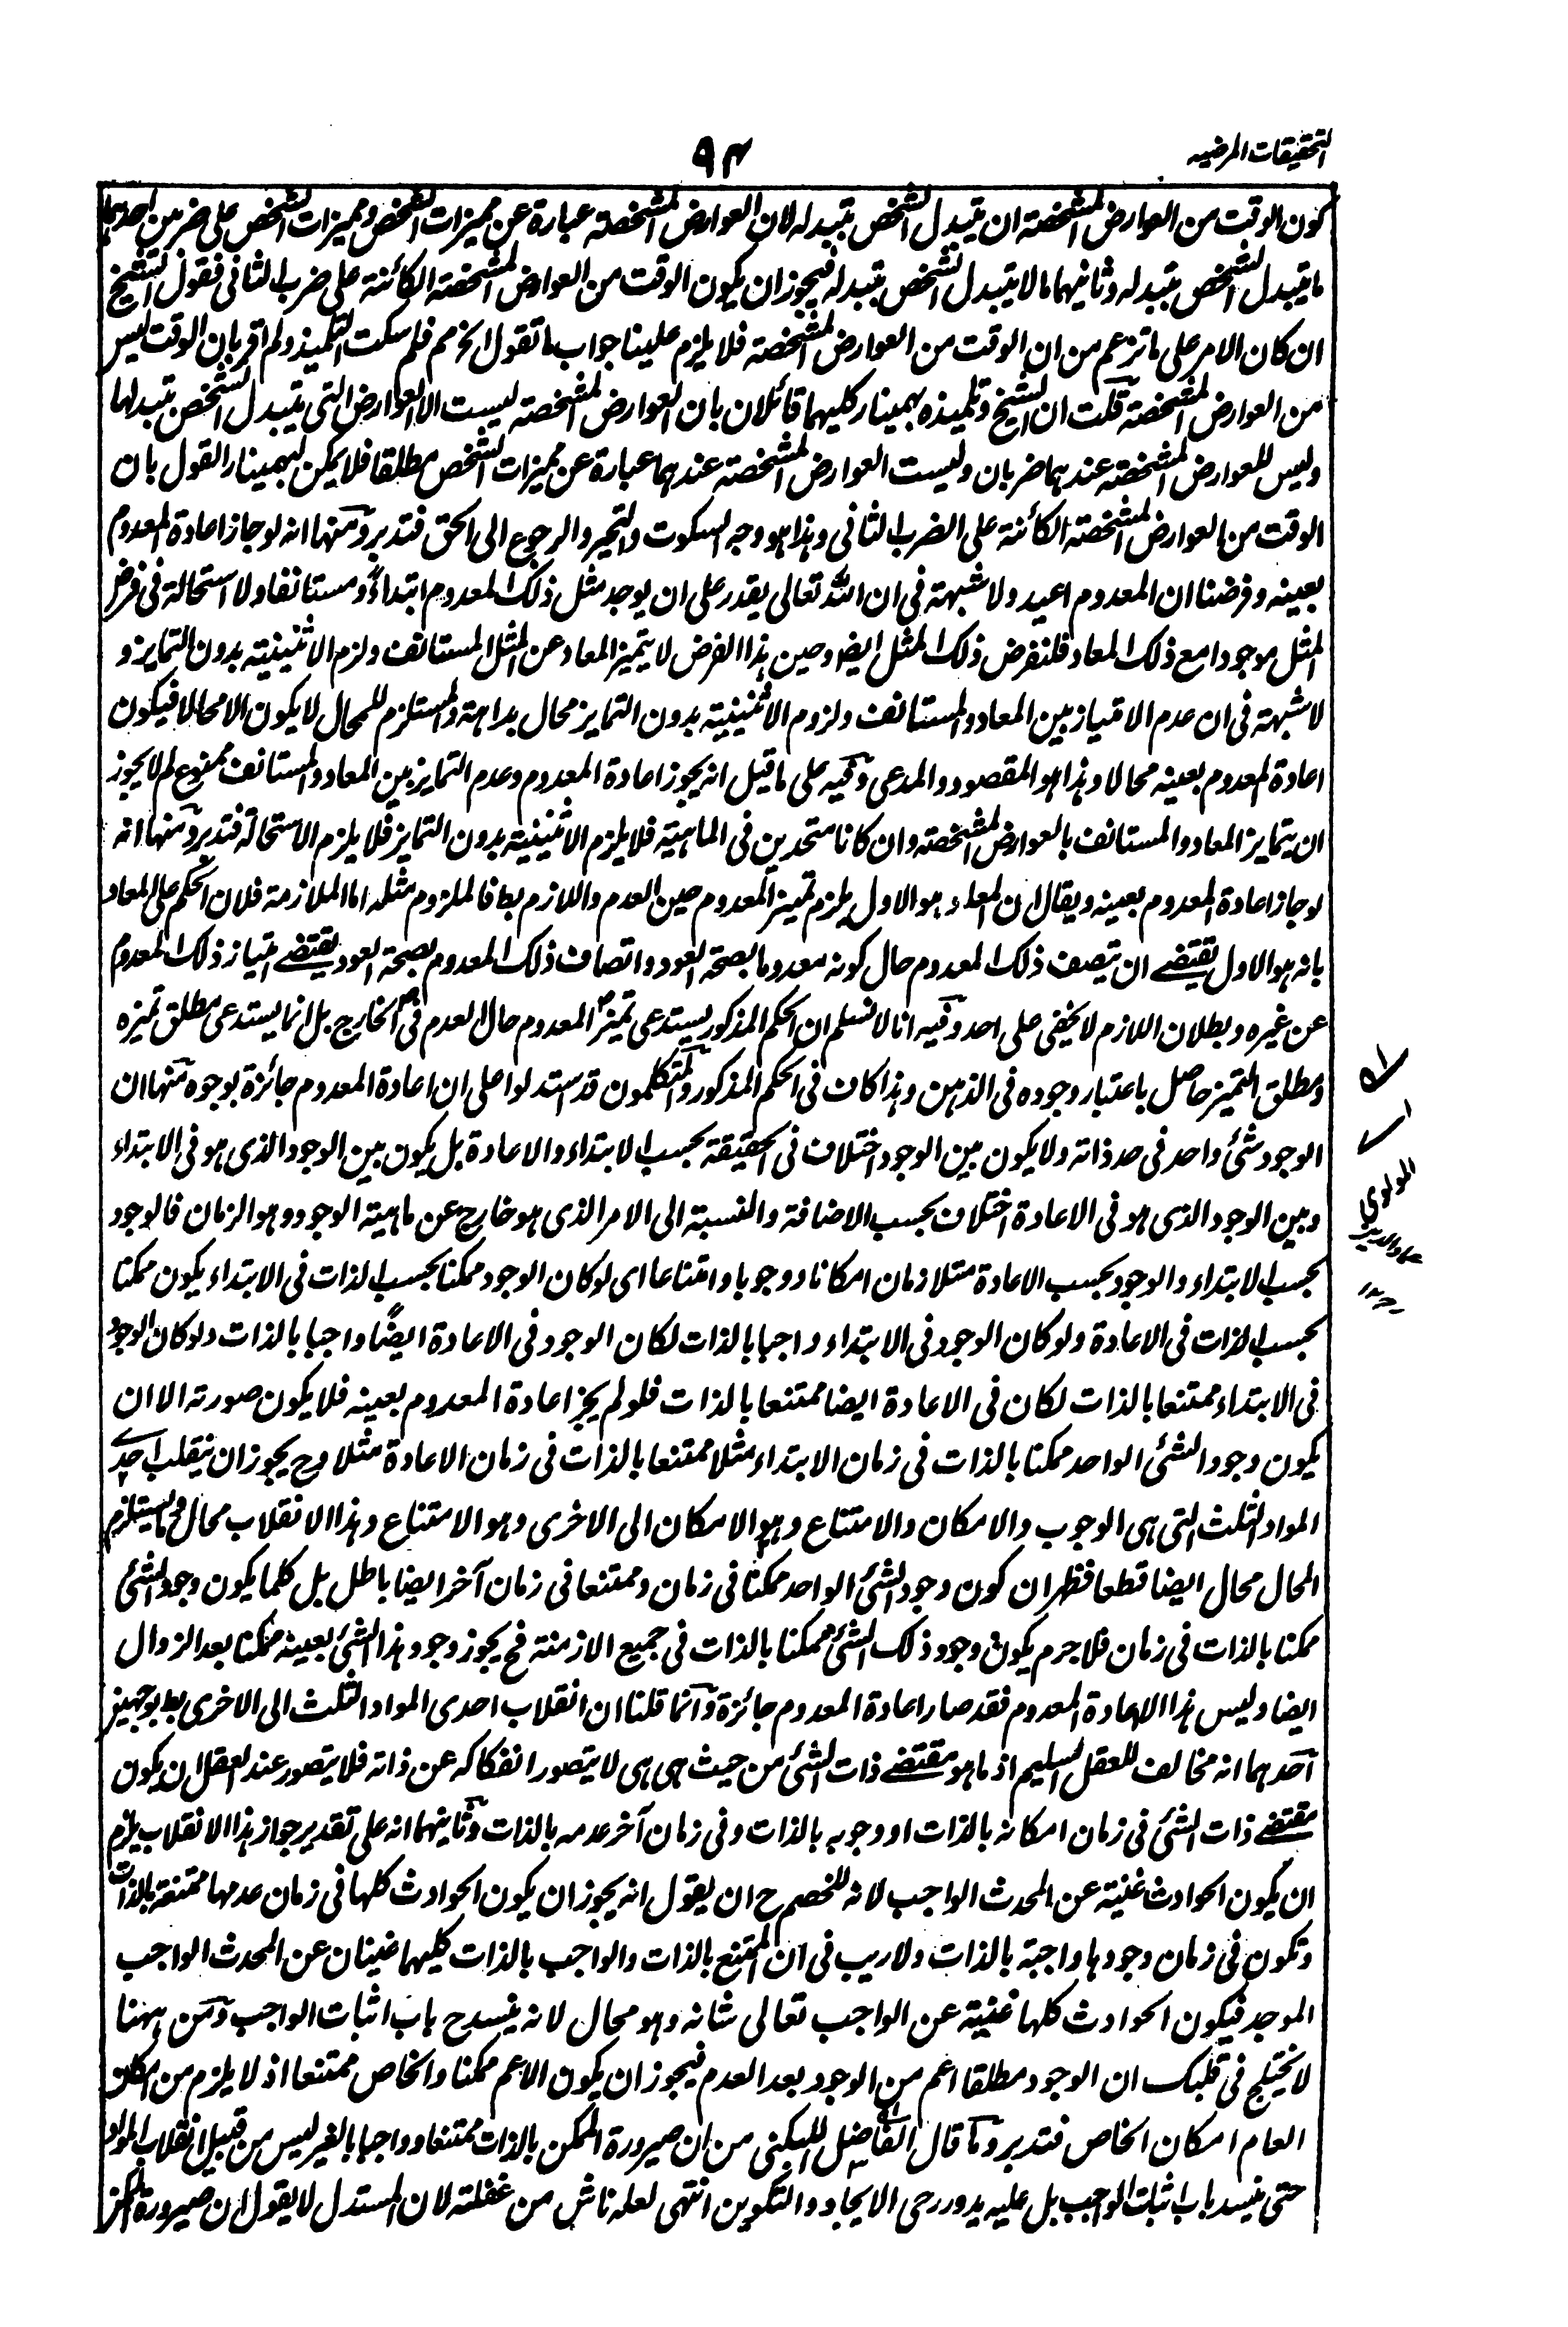 التحقيقات المرضيه
٩٤
كون الوقت من العوارض المشخصته ان يتبدل الشخص بتبدله لان العوارض المشخصته عبارة عن مميزات الشخص ومميزات الشخص على ضربين احدهما
ما يتبدل الشخص بتبدله وثانيهما مالا يتبدل الشخص بتبدله فيجوز ان يكون الوقت من العوارض المشخصته الكائنة على ضرب الثانى فقول الشيخ
ان كان الامر على ما تزعم من ان الوقت من العوارض المشخصته فلا يلزم علينا جواب ما تقول الخ مم فلم سكت التلميذ ولم اقر بان الوقت ليس
من العوارض المشخصتة قلت ان الشيخ وتلميذه بهمينار كليهما قائلان بان العوارض المشخصته ليست الا العوارض التى يتبدل الشخص بتبدلها
وليس للعوارض المشخصته عندهما ضربان وليست العوارض المشخصته عندهما عبارة عن مميزات الشخص مطلقا فلا يمكن لبهمينار القول بان
الوقت من العوارض المشخصته الكائنة على الضرب الثانى وهذا هو وجه السكوت والتحير والرجوع الى الحق فتدبر ومنها انه لو جاز اعادة المعدوم
بعينه وفرضنا ان المعدوم اعيد ولا شبهته فى ان الله تعالى يقدر على ان يوجد مثل ذلك المعدوم ابتداءً ومستانفا ولا استحالة فى فرض
المثل موجودا مع ذلك المعاد فلنفرض ذلك المثل ايضا وحين هذا الفرض لا يتميز المعاد عن المثل المستانف ولزم الاثنينيته بدون التمايز و
لا شبهته فى ان عدم الامتياز بين المعاد والمستانف ولزوم الاثنينيته بدون التمايز محال بداهة والمستلزم للمحال لا يكون الا محالا فيكون
اعادة المعدوم بعينه محالا وهذا هو المقصود والمدعى وفيه على ما قيل انه يجوز اعادة المعدوم وعدم التمايز بين المعاد والمستانف ممنوع لم لا يجوز
ان يتمايز المعاد والمستانف بالعوارض المشخصته وان كانا متحدين فى الماهيته فلا يلزم الاثنينيته بدون التمايز فلا يلزم الاستحالة فتدبر ومنها انه
لو جاز اعادة المعدوم بعينه ويقال ان المعاد هو الاول يلزم تميز المعدوم حين العدم واللازم بط فالملزوم مثله اما الملازمة فلان الحكم على المعاد
بانه هو الاول يقتضے ان يتصف ذلك المعدوم حال كونه معدوما بصحة العود واتصاف ذلك المعدوم بصحة العود يقتضے امتياز ذلك المعدوم
عن غيره وبطلان اللازم لا يخفى على احد وفيه انا لا نسلم ان الحكم المذكور يستدعى تميز المعدوم حال العدم فى الخارج بل انما يستدعى مطلق تميزه
ومطلق التميز حاصل باعتبار وجوده فى الذهن وهذا كاف فى الحكم المذكور والمتكلمون قد استدلوا على ان اعادة المعدوم جائزة بوجوه منها ان
الوجود شئ واحد فى حد ذاته ولا يكون بين الوجود اختلاف فى الحقيقة بحسب الابتداء والاعادة بل يكون بين الوجود الذى هو فى الابتداء
وبين الوجود الذى هو فى الاعادة اختلاف بحسب الاضافة والنسبة الى الامر الذى هو خارج عن ماهيته الوجود وهو الزمان فالوجود
بحسب الابتداء والوجود بحسب الاعادة متلازمان امكانا ووجوبا وامتناعا اى لو كان الوجود ممكنا بحسب الذات فى الابتداء يكون ممكنا
بحسب الذات فى الاعادة ولو كان الوجود فى الابتداء واجبا بالذات لكان الوجود فى الاعادة ايضًا واجبا بالذات ولو كان الوجود
فى الابتداء ممتنعا بالذات لكان فى الاعادة ايضا ممتنعا بالذات فلو لم يجز اعادة المعدوم بعينه فلا يكون صورته الا ان
يكون وجود الشئ الواحد ممكنا بالذات فى زمان الابتداء مثلا ممتنعا بالذات فى زمان الاعادة مثلا وح يجوز ان ينقلب احدے
المواد الثلث التى هى الوجوب والامكان والامتناع وهو الامكان الى الاخرى وهو الامتناع وهذا الانقلاب محال وما يستلزم
المحال محال ايضا قطعا فظهر ان كون وجود الشئ الواحد ممكنا فى زمان وممتنعا فى زمان آخر ايضا باطل بل كلما يكون وجود الشئ
ممكنا بالذات فى زمان فلا جرم يكون وجود ذلك الشئ ممكنا بالذات فى جميع الازمنة فح يجوز وجود هذا الشئ بعينه ممكنا بعد الزوال
ايضا وليس هذا الا اعادة المعدوم فقد صار اعادة المعدوم جائزة وانما قلنا ان انقلاب احدى المواد الثلث الى الاخرى بط بوجهين
احدهما انه مخالف للعقل السليم اذ ما هو مقتضے ذات الشئ من حيث هى هى لا يتصور انفكاكه عن ذاته فلا يتصور عند العقل ان يكون
مقتضے ذات الشئ فى زمان امكانه بالذات او وجوبه بالذات وفى زمان آخر عدمه بالذات وثانيهما انه على تقدير جواز هذا الانقلاب يلزم
ان يكون الحوادث غنية عن المحدث الواجب لانه للخصم ح ان يقول انه يجوز ان يكون الحوادث كلها فى زمان عدمها ممتنعة بالذات
وتكون فى زمان وجودها واجبته بالذات ولا ريب فى ان الممتنع بالذات والواجب بالذات كليهما غنيان عن المحدث الواجب
الموجد فيكون الحوادث كلها غنية عن الواجب تعالى شانه وهو محال لانه ينسد ح باب اثبات الواجب ومن ههنا
لا يختلج فى قلبك ان الوجود مطلقا اعم من الوجود بعد العدم فيجوز ان يكون الاعم ممكنا والخاص ممتنعا اذ لا يلزم من امكان
العام امكان الخاص فتدبر وما قال الفاضل اللبكنى من ان صيرورة الممكن بالذات ممتنعا وواجبا بالغير ليس من قبيل انقلاب المواد
حتى ينسد باب اثبات الواجب بل عليه يدور رحى الايجاد والتكوين انتهى لعله ناش من غفلته لان المستدل لا يقول ان صيرورة الممكن
المولوى